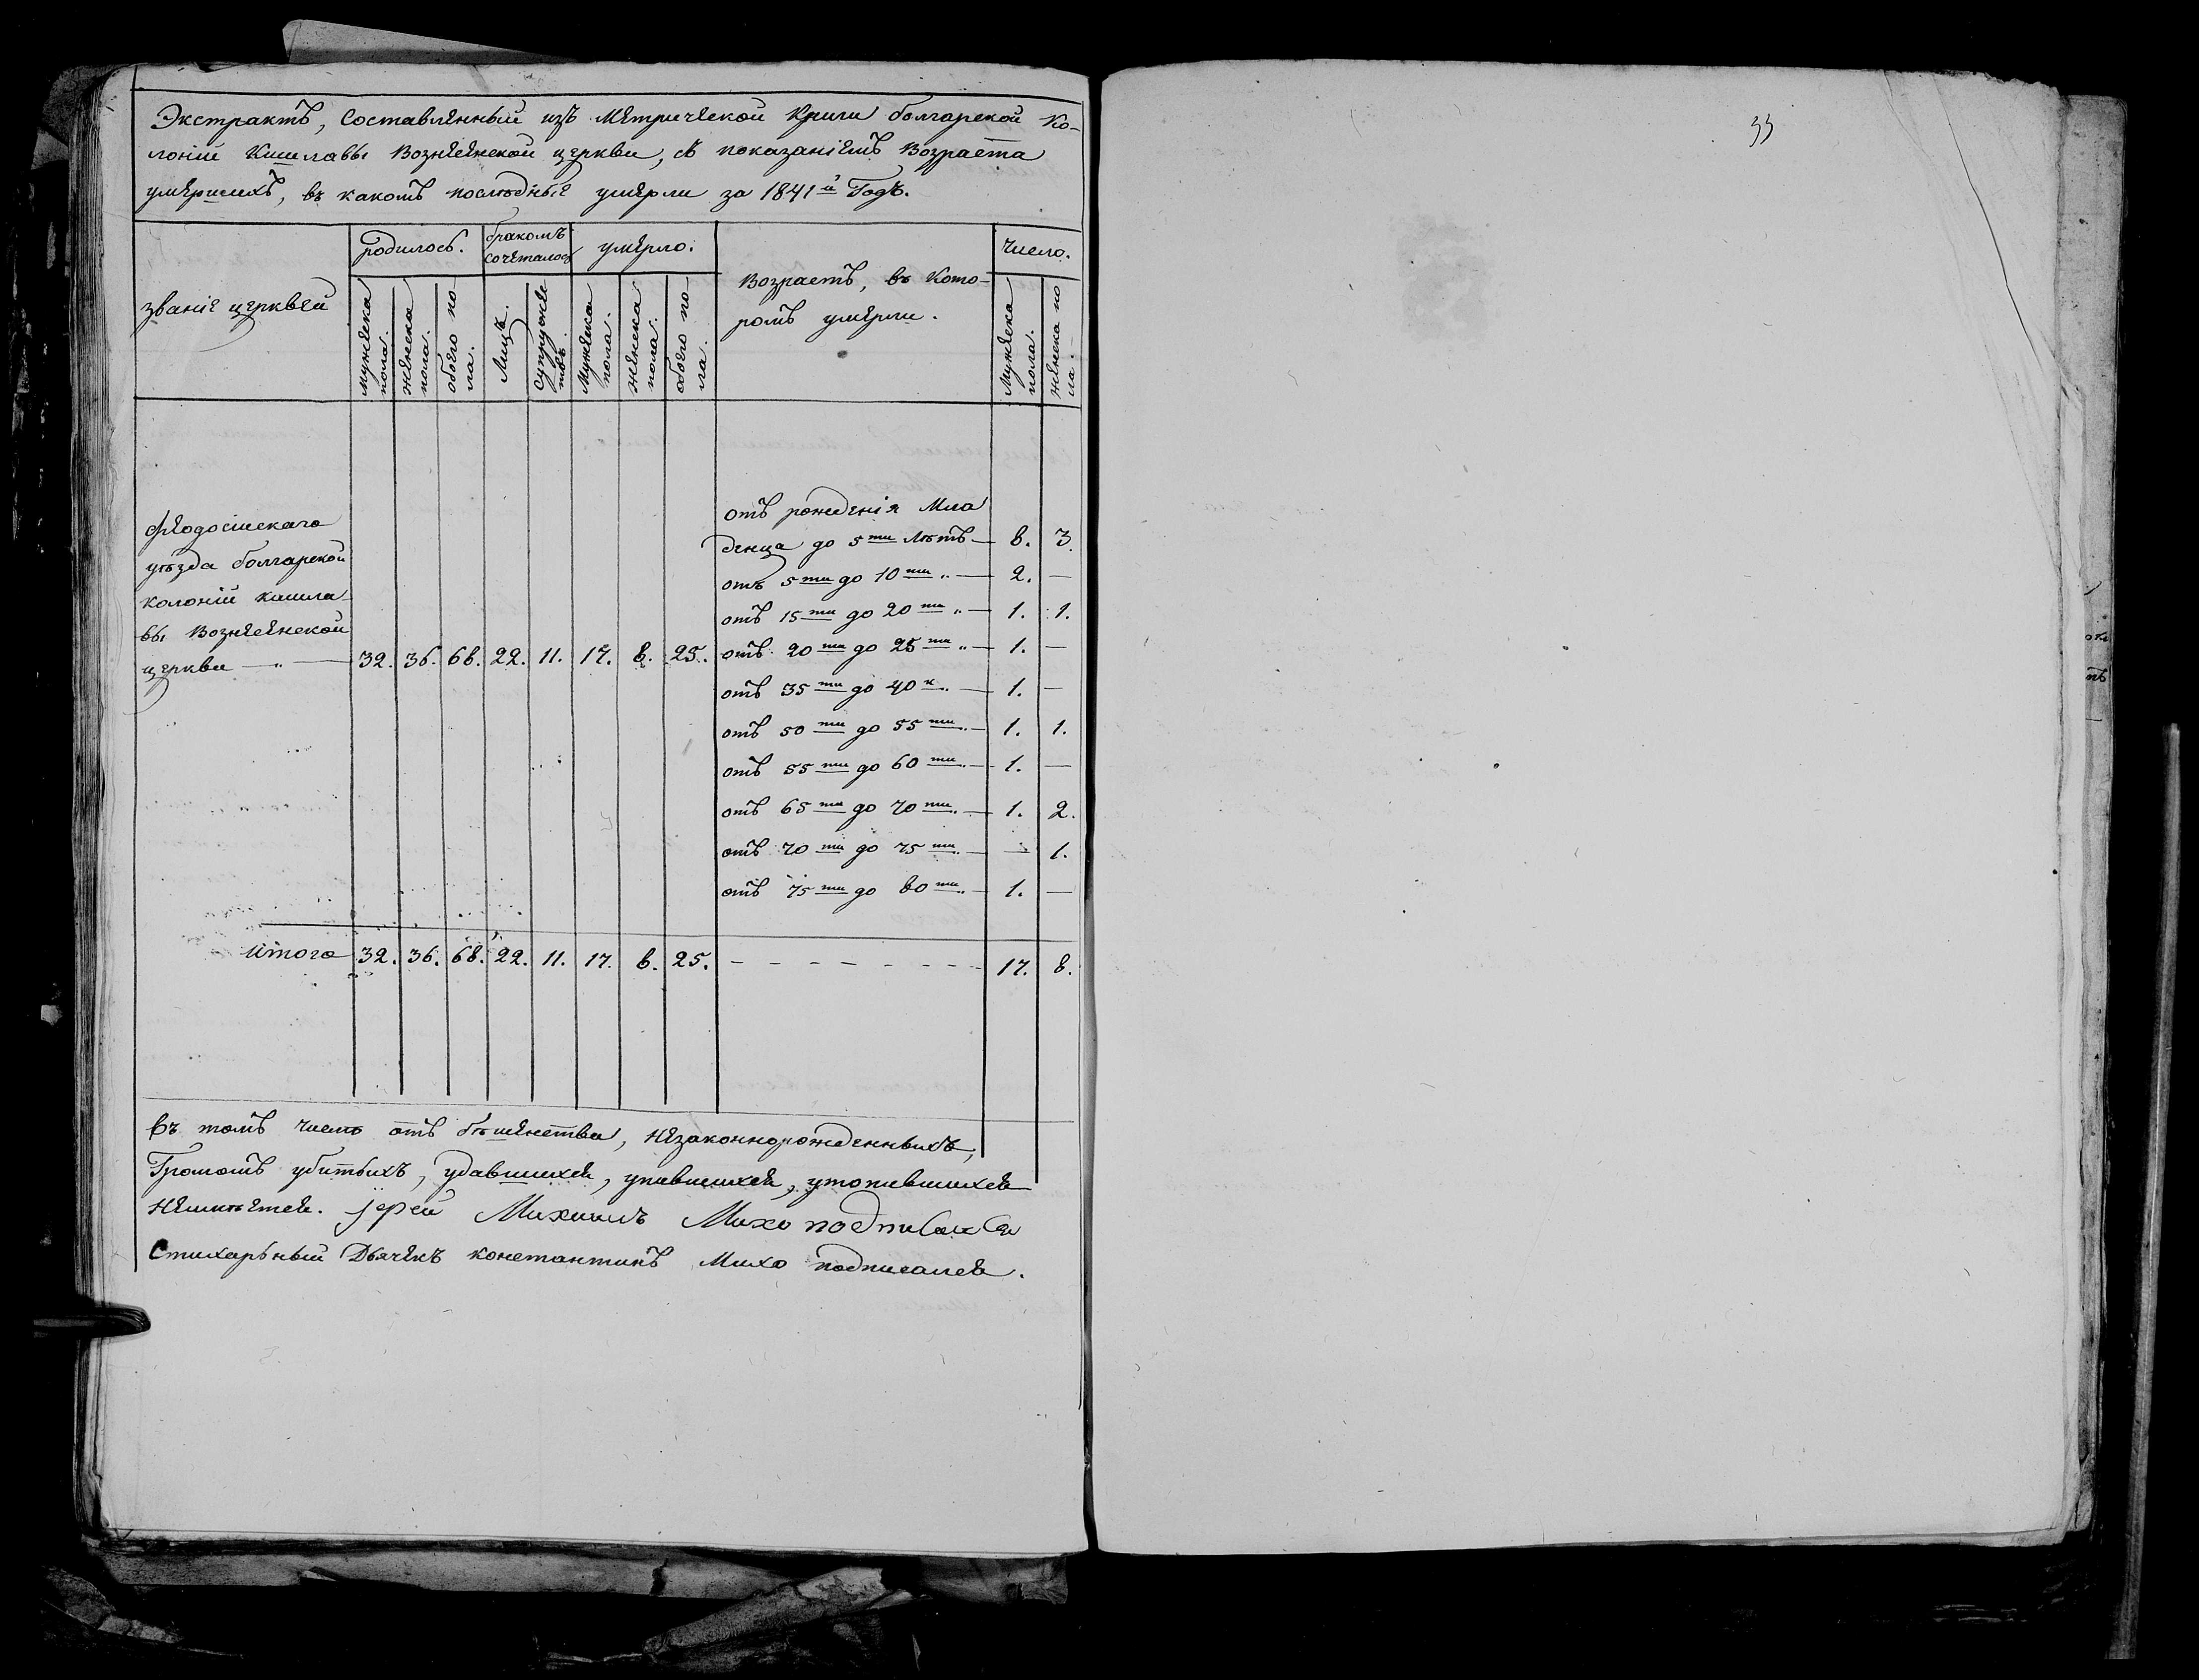 Экстрактъ, Составленный изъ Метрической Книги болгарской Ко-
лоніи Кишлавы Вознесенской церкви, съ показаніемъ Возраста
умершихъ, въ какомъ послѣдніе умерли за 1841й Годъ.
званіе церквей
родилось.
бракомъ
сочеталось
умерло.
Возрастъ, въ Кото-
ромъ умерли.
Число.
мужеска
пола.
женска
пола.
обоего по-
ла.
Лицъ.
супружес
твъ.
Мужеска
пола.
женска
пола.
обоего по-
ла.
Мужеска
пола.
женска по
ла.
Феодосійскаго
уѣзда болгарской
колоніи кишла-
вы Вознесенской
церкви — „ — 32. 36. 68. 22. 11. 17. 8. 25.
отъ рожденія Мла
денца до 5ти Лѣтъ — 8. 3.
отъ 5ти до 10ти „ — 2. —
отъ 15ти до 20ти „ — 1. 1.
отъ 20ти до 25ти „ — 1. —
отъ 35ти до 40к „ — 1. —
отъ 50ти до 55ти „ — 1. 1.
отъ 55ти до 60ти „ — 1. —
отъ 65ти до 70ти „ — 1. 2.
отъ 70ти до 75ти „ — — 1.
отъ 75ти до 80ти „ — 1. —
Итого 32. 36. 68. 22. 11. 17. 8. 25. - - - - - - - - 17. 8.
Въ томъ числѣ отъ бѣшенства, незаконнорожденныхъ,
Громомъ убитыхъ, удавшихся, упившихся, утопившихся
неимѣется. Іерей Михаилъ Михо подписался
Стихарьный Дьячекъ константинъ Михо подписался.
33